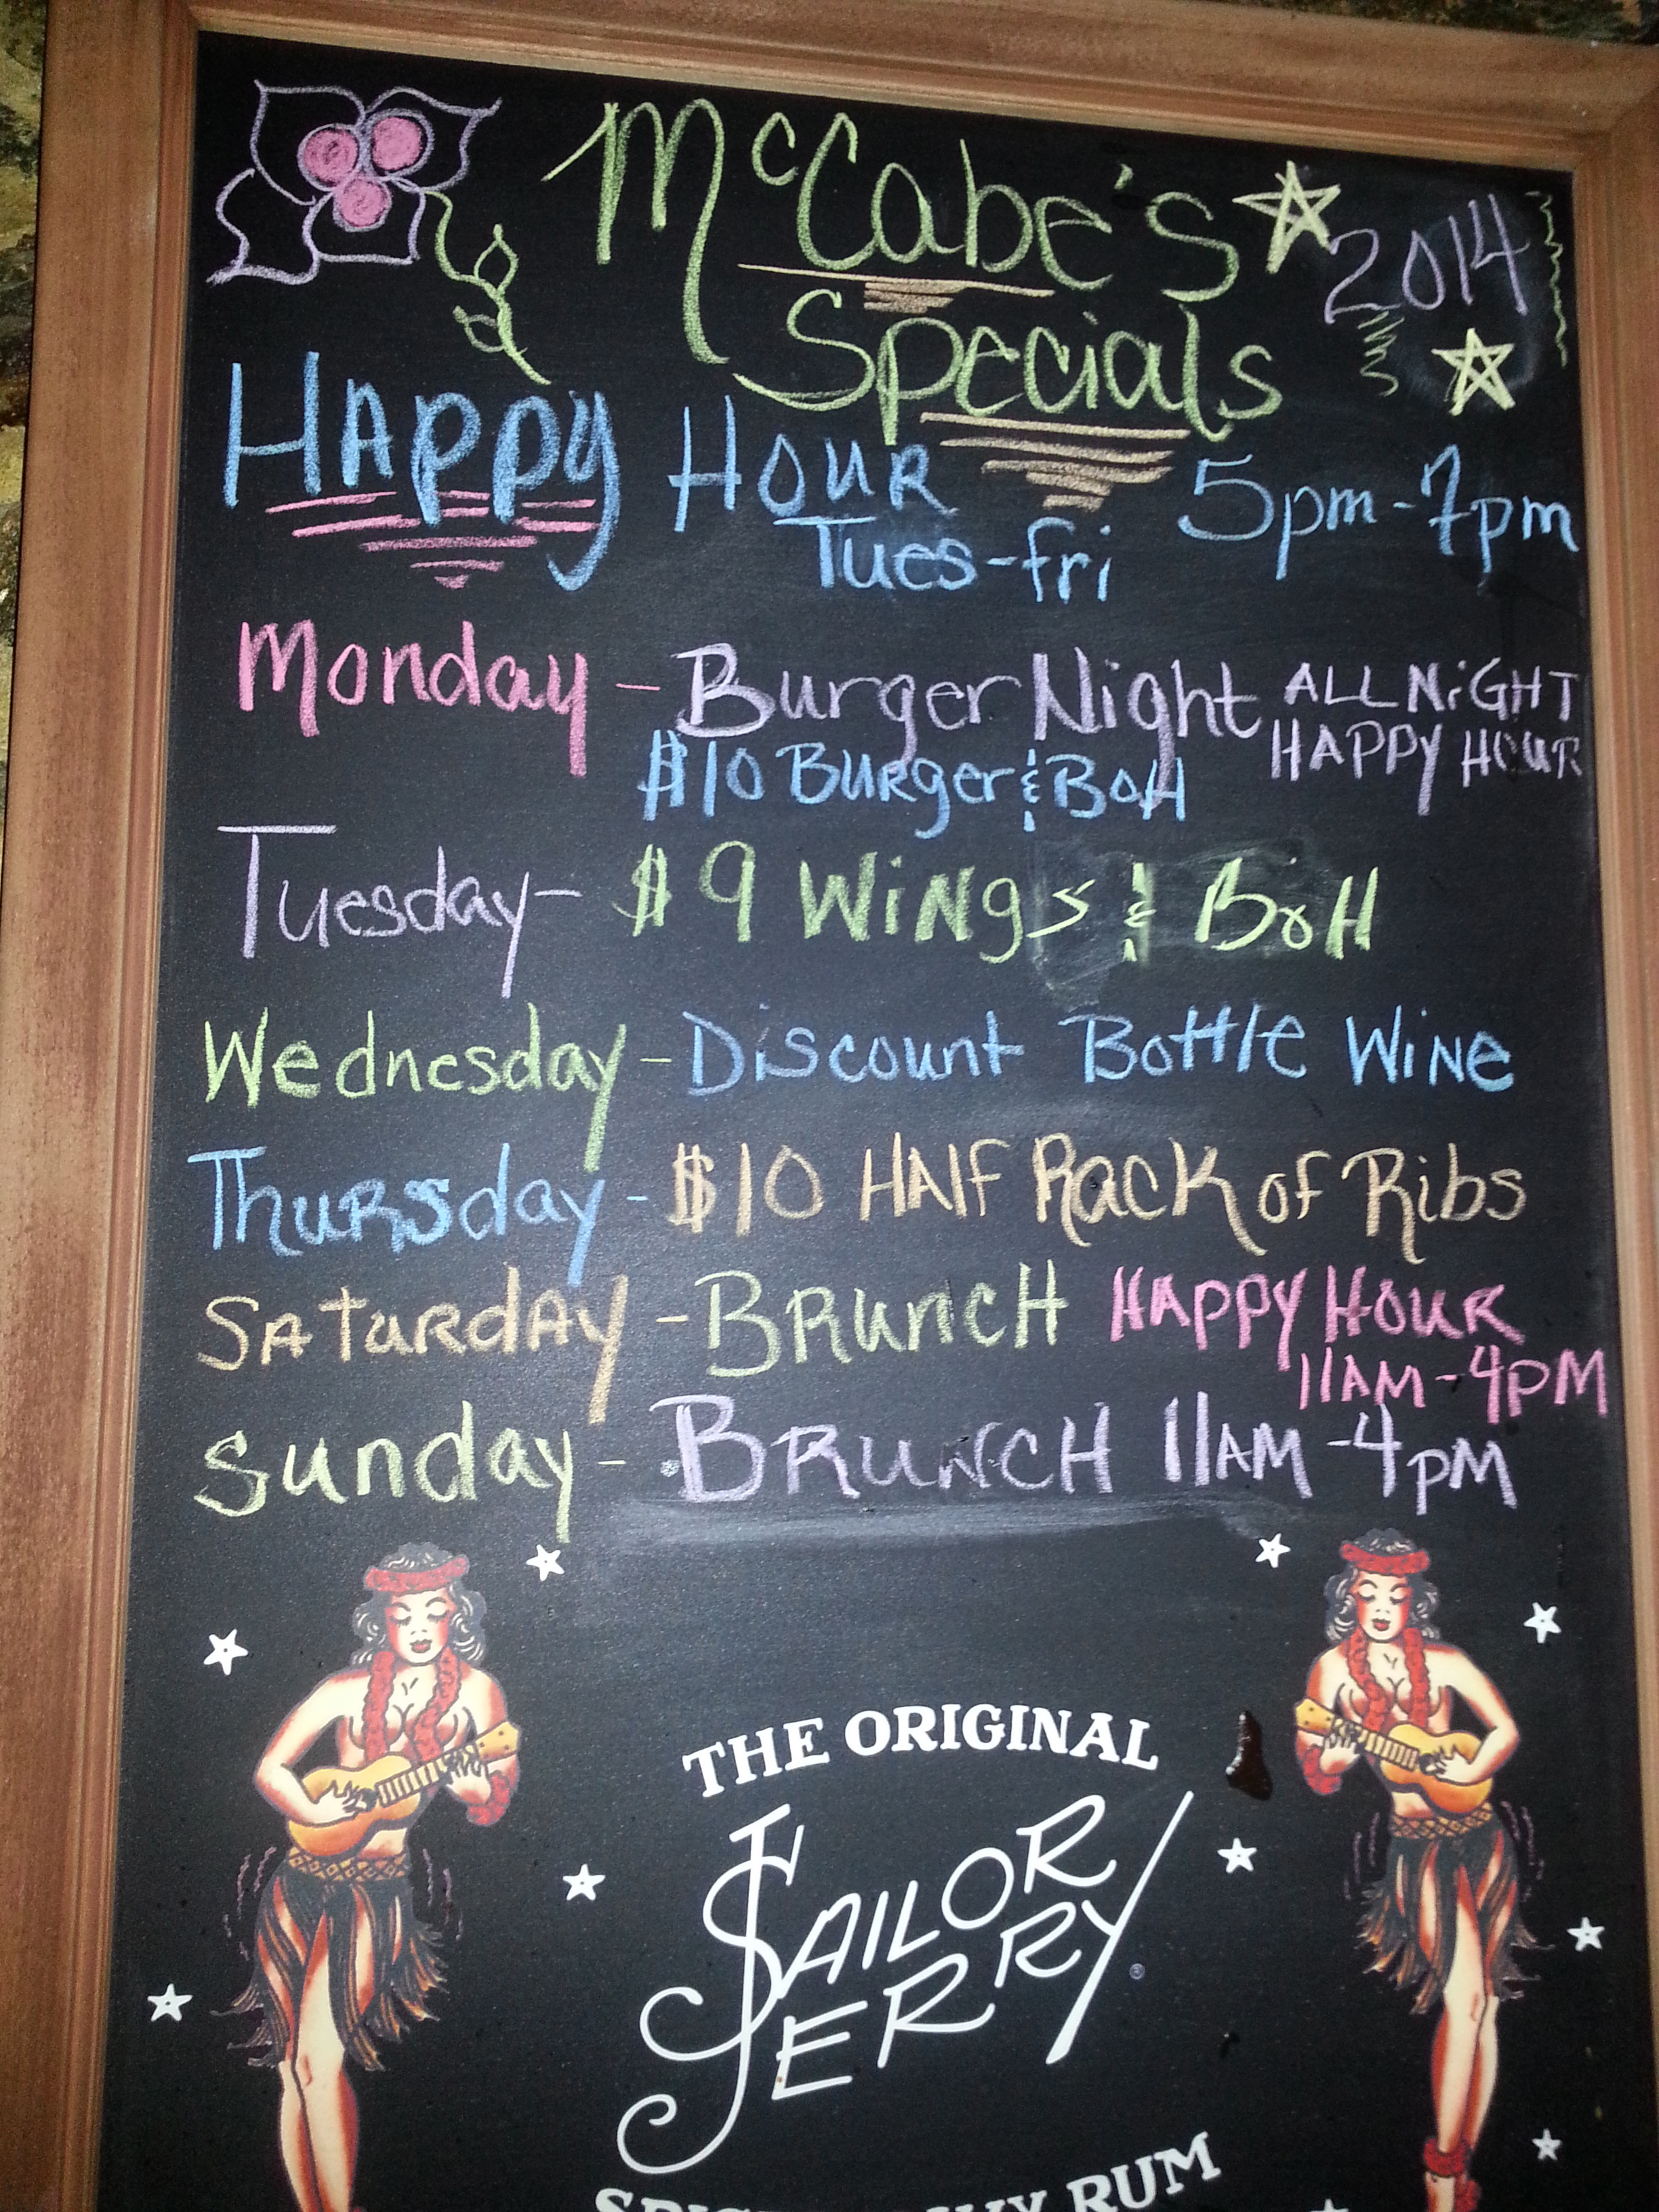 McCabe's 2014
Specials
Happy Hour 5pm-7pm
Tues-fri
Monday - Burger Night ALL NiGHT
HAPPY HOUR
$10 Burger & BOH
Tuesday - $9 WiNgs & BOH
Wednesday - Discount Bottle WiNe
Thursday - $10 HAlf Rack of Ribs
SATURdAy - BRunCH HAPPY HOUR
11AM-4PM
Sunday - BRUNCH 11AM-4PM
THE ORIGINAL
SAILOR
JERRY
RUM